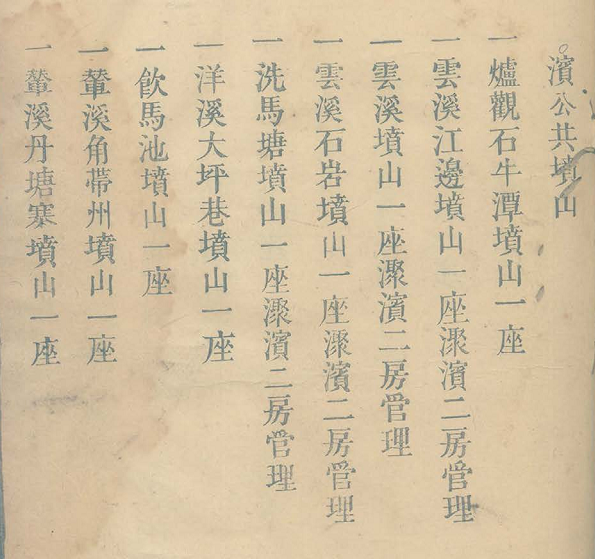 濱公共墳山
一爐觀石牛潭墳山一座
一雲溪江邊墳山一座潈濱二房管理
一雲溪墳山一座潈濱二房管理
一雲溪石岩墳山一座潈濱二房管理
一洗馬塘墳山一座潈濱二房管理
一洋溪大坪巷墳山一座
一飲馬池墳山一座
一輋溪角帶州墳山一座
一輋溪丹塘寨墳山一座